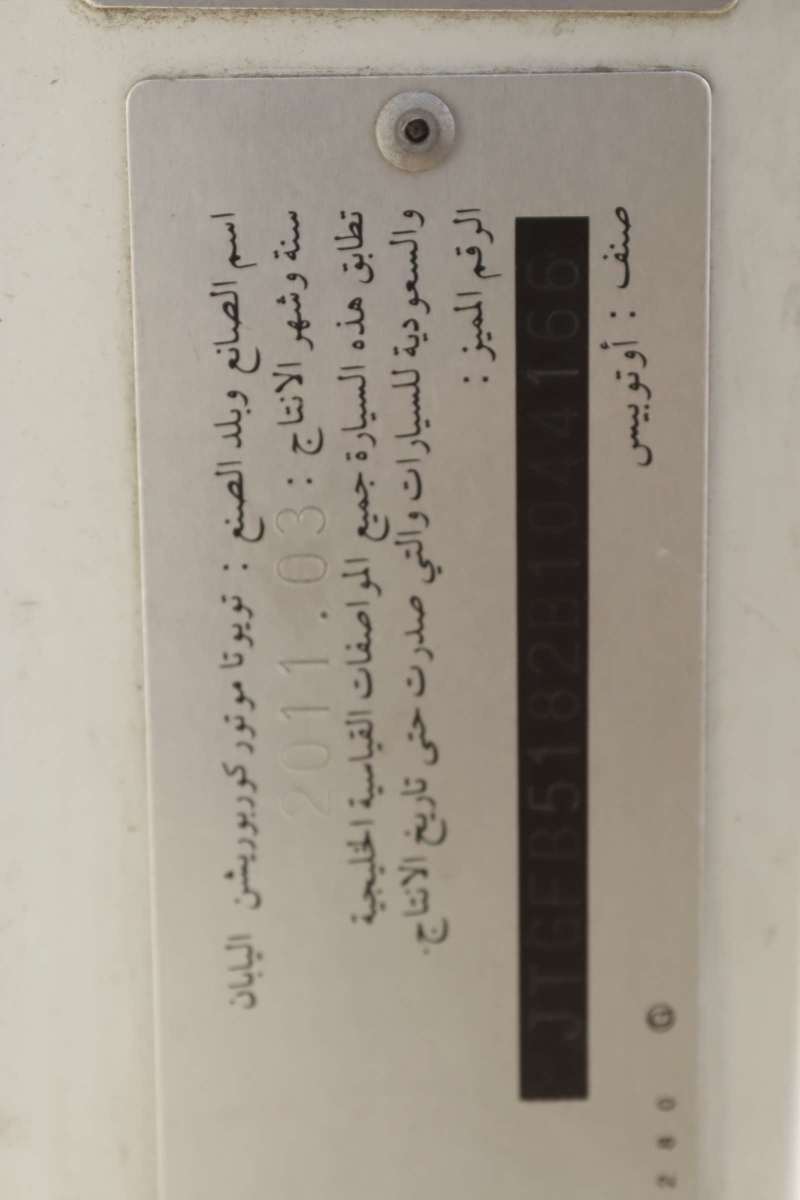 اسم الصانع وبلد الصنع : تويوتا موتور كوربوريشن اليابان
سنة وشهر الانتاج : 2011.03
تطابق هذه السيارة جميع المواصفات القياسية الخليجية
والسعودية للسيارات والتي صدرت حتى تاريخ الانتاج.
الرقم المميز :
JTGFB5182B1044166
صنف : أوتوبيس
280 G